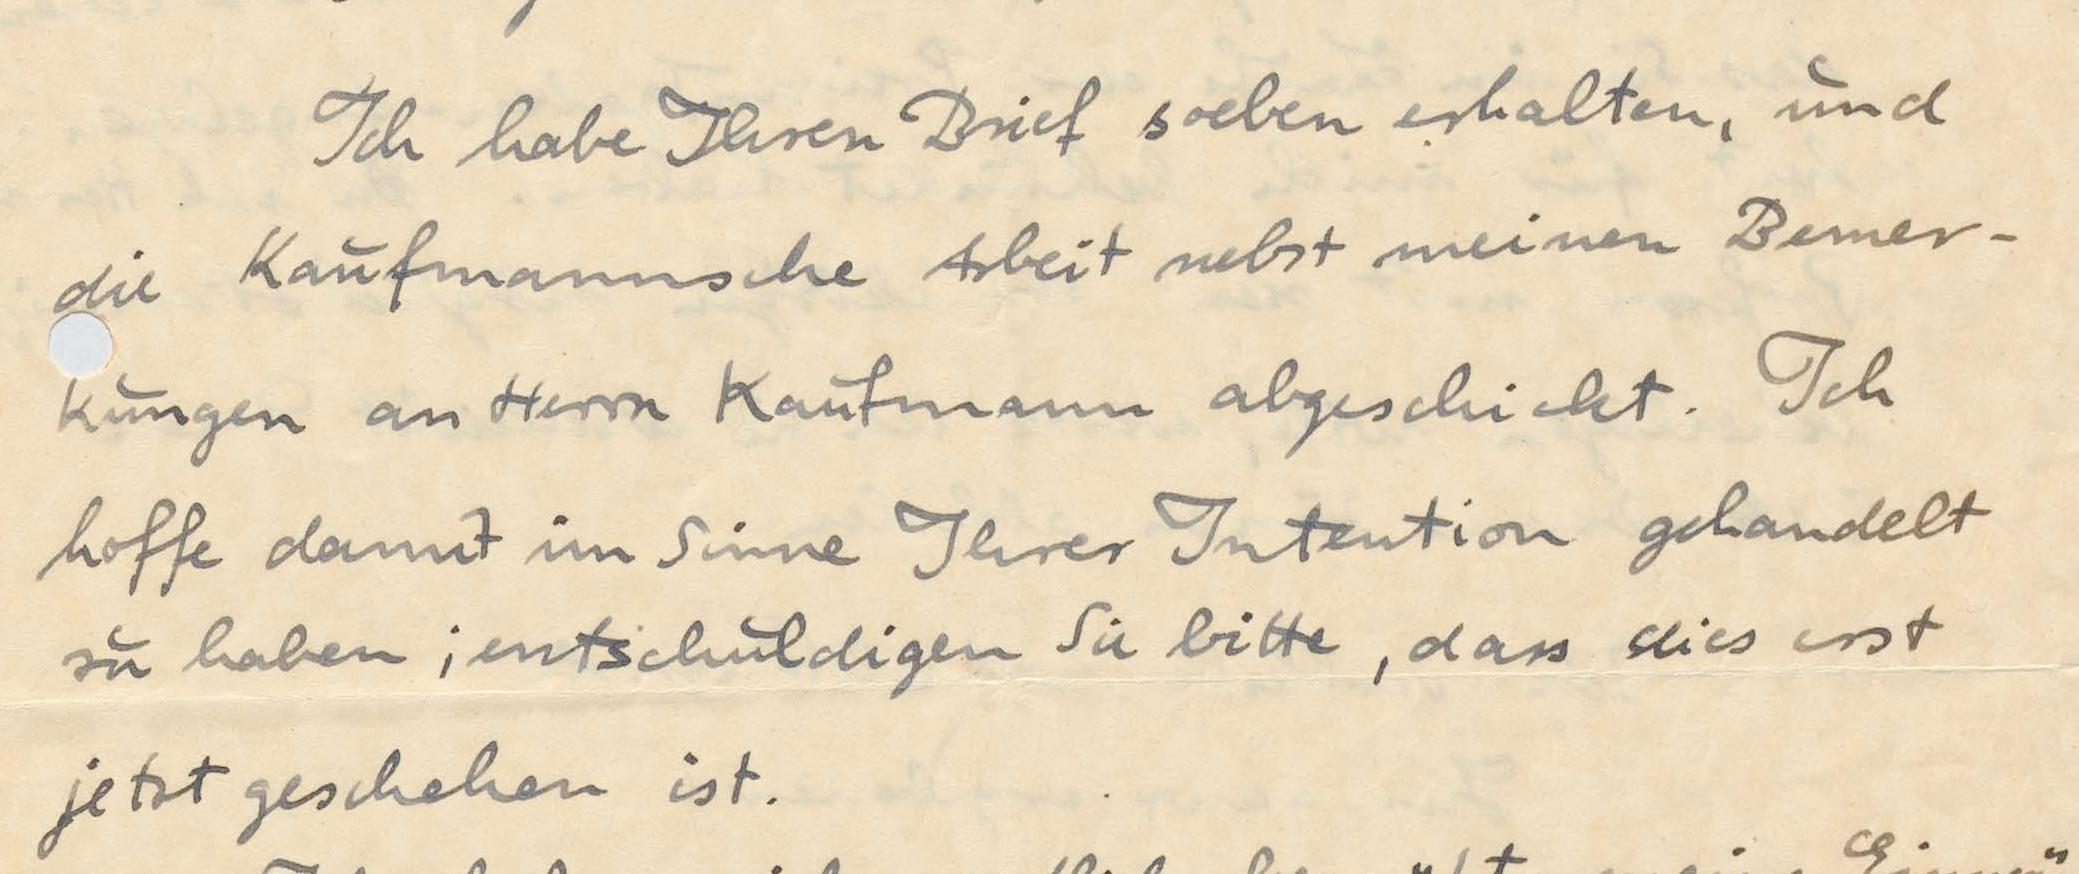 Ich habe Ihren Brief soeben erhalten, und
die Kaufmannsche Arbeit nebst meinen Bemer-
kungen an Herrn Kaufmann abgeschickt. Ich
hoffe damit im Sinne Ihrer Intention gehandelt
zu haben; entschuldigen Sie bitte, dass dies erst
jetzt geschehen ist.